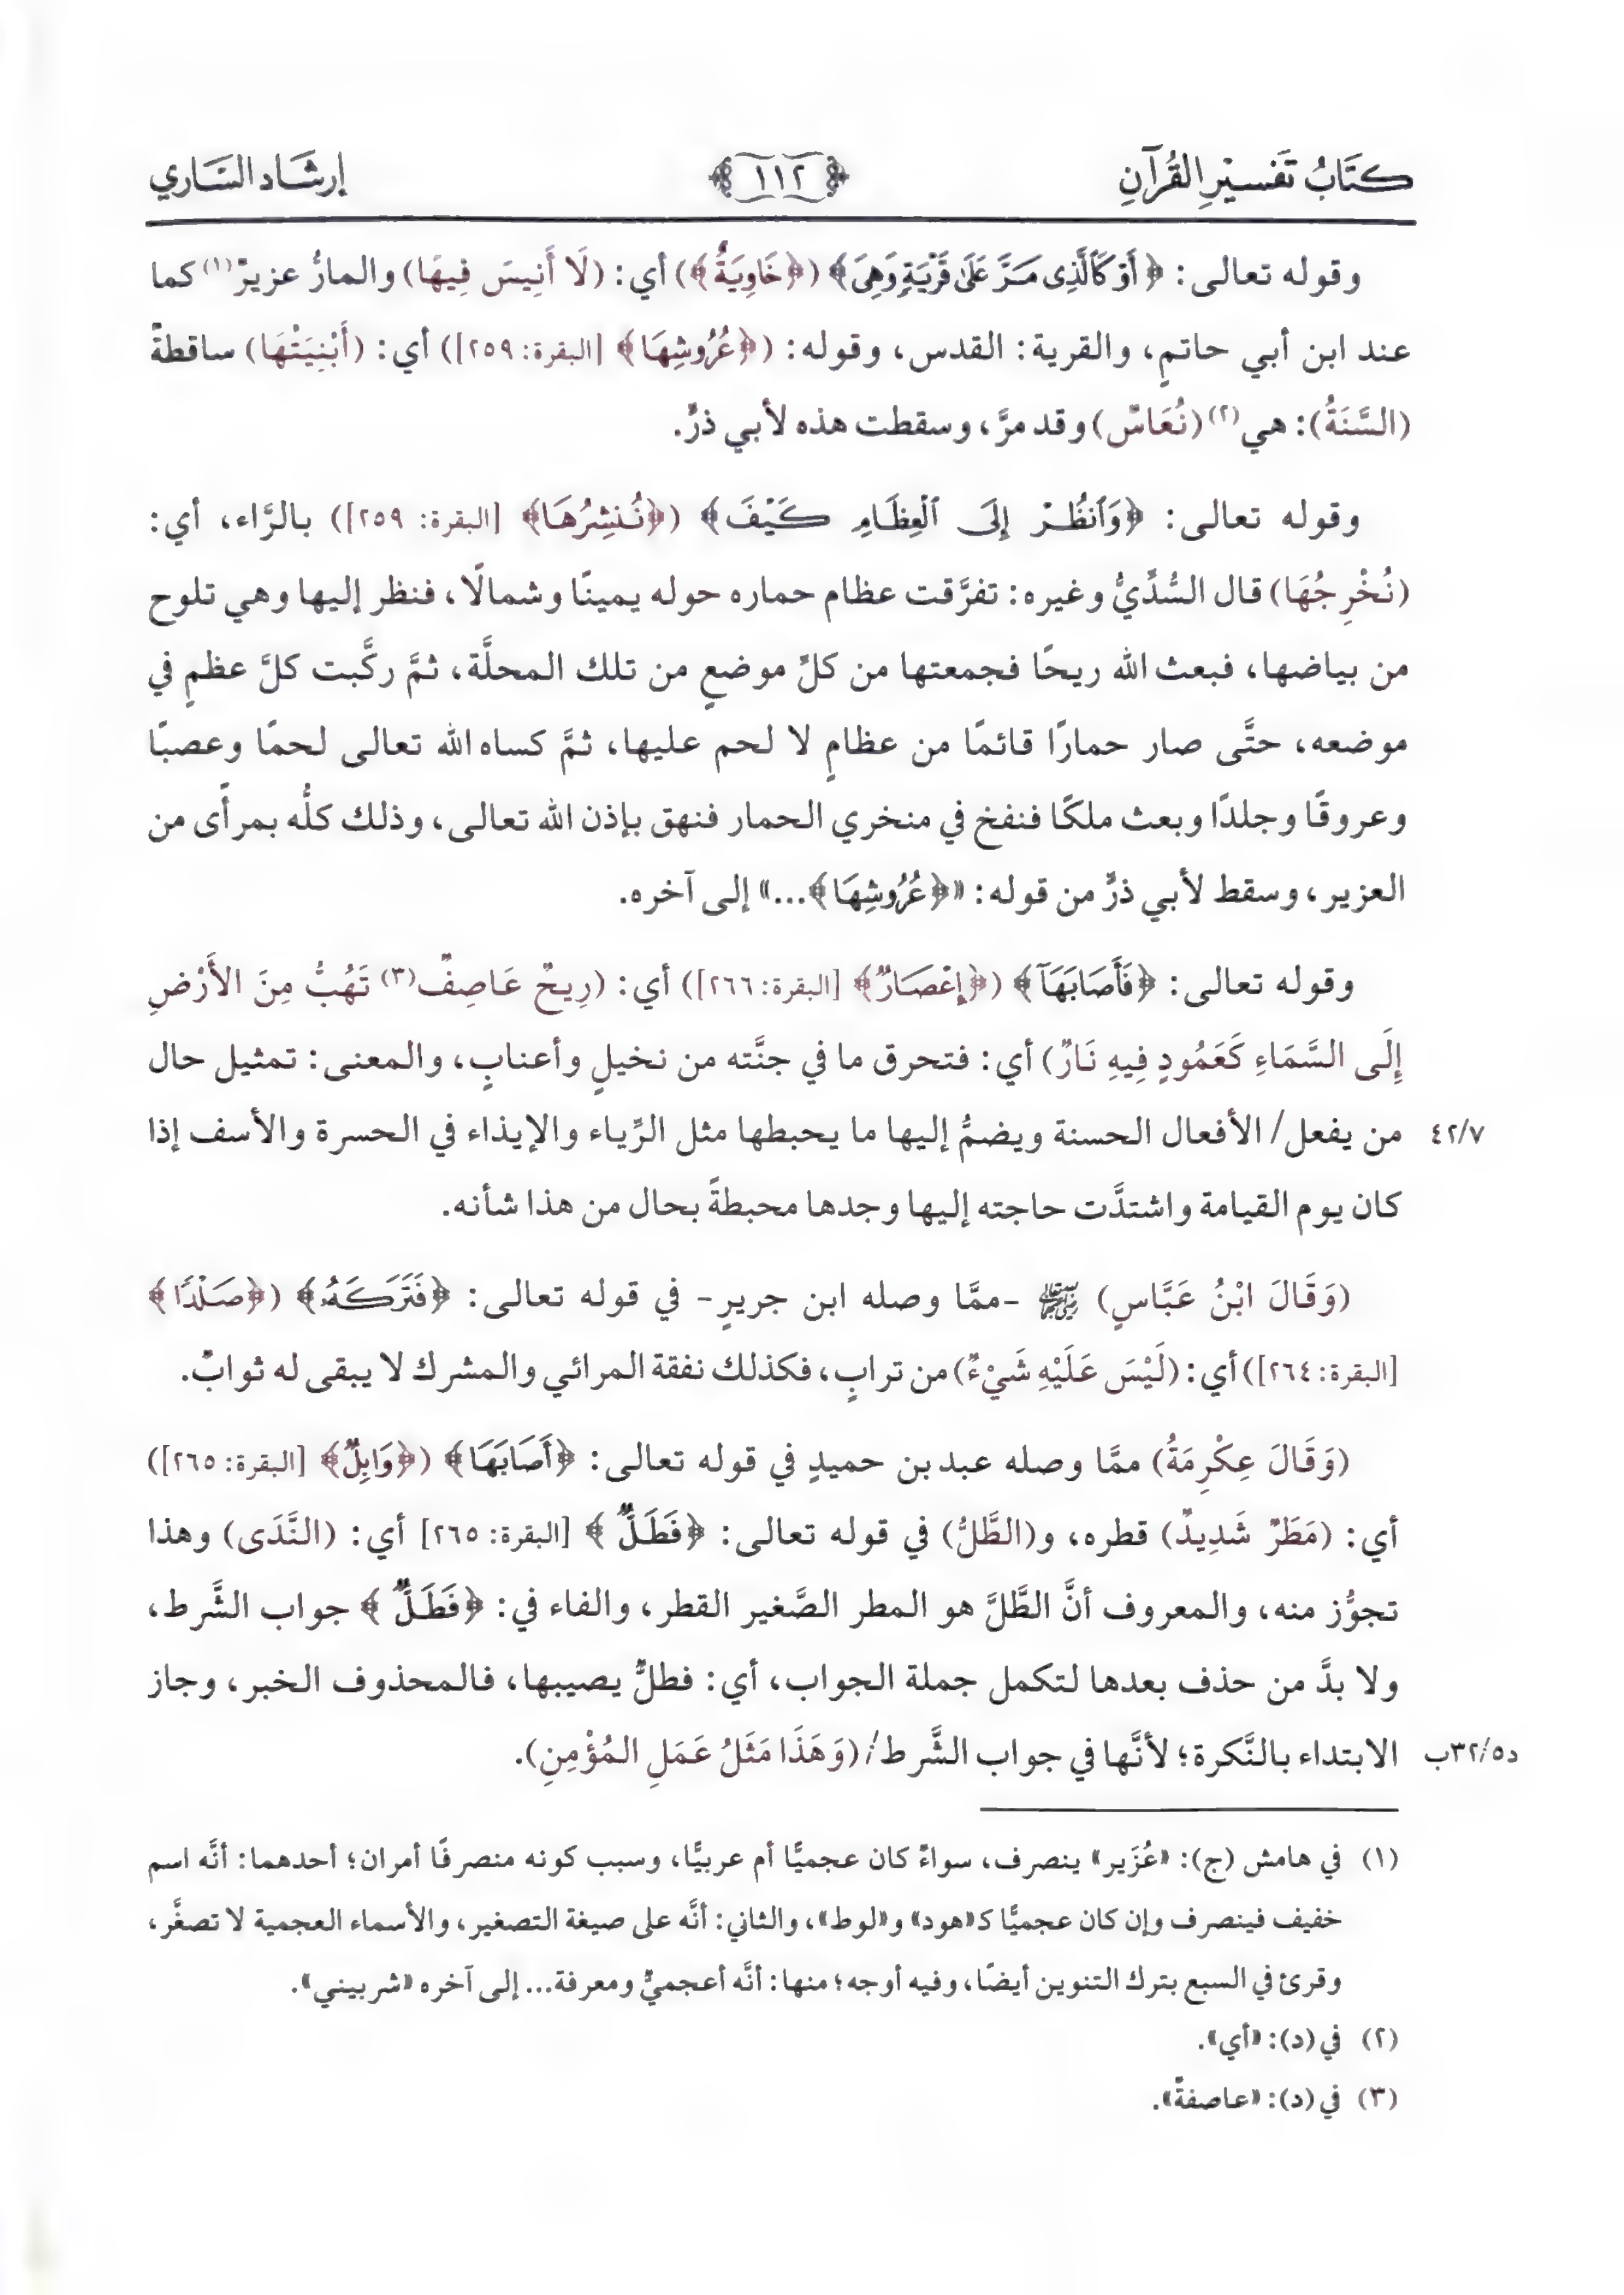 كتاب تفسير القرآن
١١٢
إرشاد الساري
وقوله تعالى: ﴿أَوْ كَالَّذِى مَرَّ عَلَىٰ قَرْيَةٍ وَهِىَ﴾ (﴿خَاوِيَةٌ﴾) أي: (لَا أَنِيسَ فِيهَا) والمارُّ عزيرٌ(١) كما
عند ابن أبي حاتمٍ، والقرية: القدس، وقوله: (﴿عُرُوشِهَا﴾ [البقرة: ٢٥٩]) أي: (أَبْنِيَتُهَا) ساقطةٌ
(السَّنَةُ): هي(٢) (نُعَاسٌ) وقد مرَّ، وسقطت هذه لأبي ذرٍّ.
وقوله تعالى: ﴿وَٱنظُرْ إِلَى ٱلْعِظَامِ كَيْفَ﴾ (﴿نُنشِرُهَا﴾ [البقرة: ٢٥٩]) بالرَّاء، أي:
(نُخْرِجُهَا) قال السُّدِّيُّ وغيره: تفرَّقت عظام حماره حوله يمينًا وشمالًا، فنظر إليها وهي تلوح
من بياضها، فبعث الله ريحًا فجمعتها من كلِّ موضعٍ من تلك المحلَّة، ثمَّ ركَّبت كلَّ عظمٍ في
موضعه، حتَّى صار حمارًا قائمًا من عظامٍ لا لحم عليها، ثمَّ كساه الله تعالى لحمًا وعصبًا
وعروقًا وجلدًا وبعث ملكًا فنفخ في منخري الحمار فنهق بإذن الله تعالى، وذلك كلُّه بمرأًى من
العزير، وسقط لأبي ذرٍّ من قوله: «﴿عُرُوشِهَا﴾...» إلى آخره.
وقوله تعالى: ﴿فَأَصَابَهَآ﴾ (﴿إِعْصَارٌ﴾ [البقرة: ٢٦٦]) أي: (رِيحٌ عَاصِفٌ(٣) تَهُبُّ مِنَ الأَرْضِ
إِلَى السَّمَاءِ كَعَمُودٍ فِيهِ نَارٌ) أي: فتحرق ما في جنَّته من نخيلٍ وأعنابٍ، والمعنى: تمثيل حال
من يفعل/ الأفعال الحسنة ويضمُّ إليها ما يحبطها مثل الرِّياء والإيذاء في الحسرة والأسف إذا
٤٢/٧
كان يوم القيامة واشتدَّت حاجته إليها وجدها محبطةً بحال من هذا شأنه.
(وَقَالَ ابْنُ عَبَّاسٍ) رضي الله عنهما -ممَّا وصله ابن جريرٍ- في قوله تعالى: ﴿فَتَرَكَهُۥ﴾ (﴿صَلْدًا﴾
[البقرة: ٢٦٤]) أي: (لَيْسَ عَلَيْهِ شَيْءٌ) من ترابٍ، فكذلك نفقة المرائي والمشرك لا يبقى له ثوابٌ.
(وَقَالَ عِكْرِمَةُ) ممَّا وصله عبد بن حميدٍ في قوله تعالى: ﴿أَصَابَهَا﴾ (﴿وَابِلٌ﴾ [البقرة: ٢٦٥])
أي: (مَطَرٌ شَدِيدٌ) قطره، و(الطَّلُّ) في قوله تعالى: ﴿فَطَلٌّ﴾ [البقرة: ٢٦٥] أي: (النَّدَى) وهذا
تجوُّز منه، والمعروف أنَّ الطَّلَّ هو المطر الصَّغير القطر، والفاء في: ﴿فَطَلٌّ﴾ جواب الشَّرط،
ولا بدَّ من حذف بعدها لتكمل جملة الجواب، أي: فطلٌّ يصيبها، فالمحذوف الخبر، وجاز
الابتداء بالنَّكرة؛ لأنَّها في جواب الشَّرط/ (وَهَذَا مَثَلُ عَمَلِ المُؤْمِنِ).
د٣٢/٥ب
(١) في هامش (ج): «عُزَير» ينصرف، سواءٌ كان عجميًّا أم عربيًّا، وسبب كونه منصرفًا أمران؛ أحدهما: أنَّه اسم
خفيف فينصرف وإن كان عجميًّا كـ«هود» و«لوط»، والثاني: أنَّه على صيغة التصغير، والأسماء العجمية لا تصغَّر،
وقرئ في السبع بترك التنوين أيضًا، وفيه أوجه؛ منها: أنَّه أعجميٌّ ومعرفة... إلى آخره «شربيني».
(٢) في (د): «أي».
(٣) في (د): «عاصفةٌ».